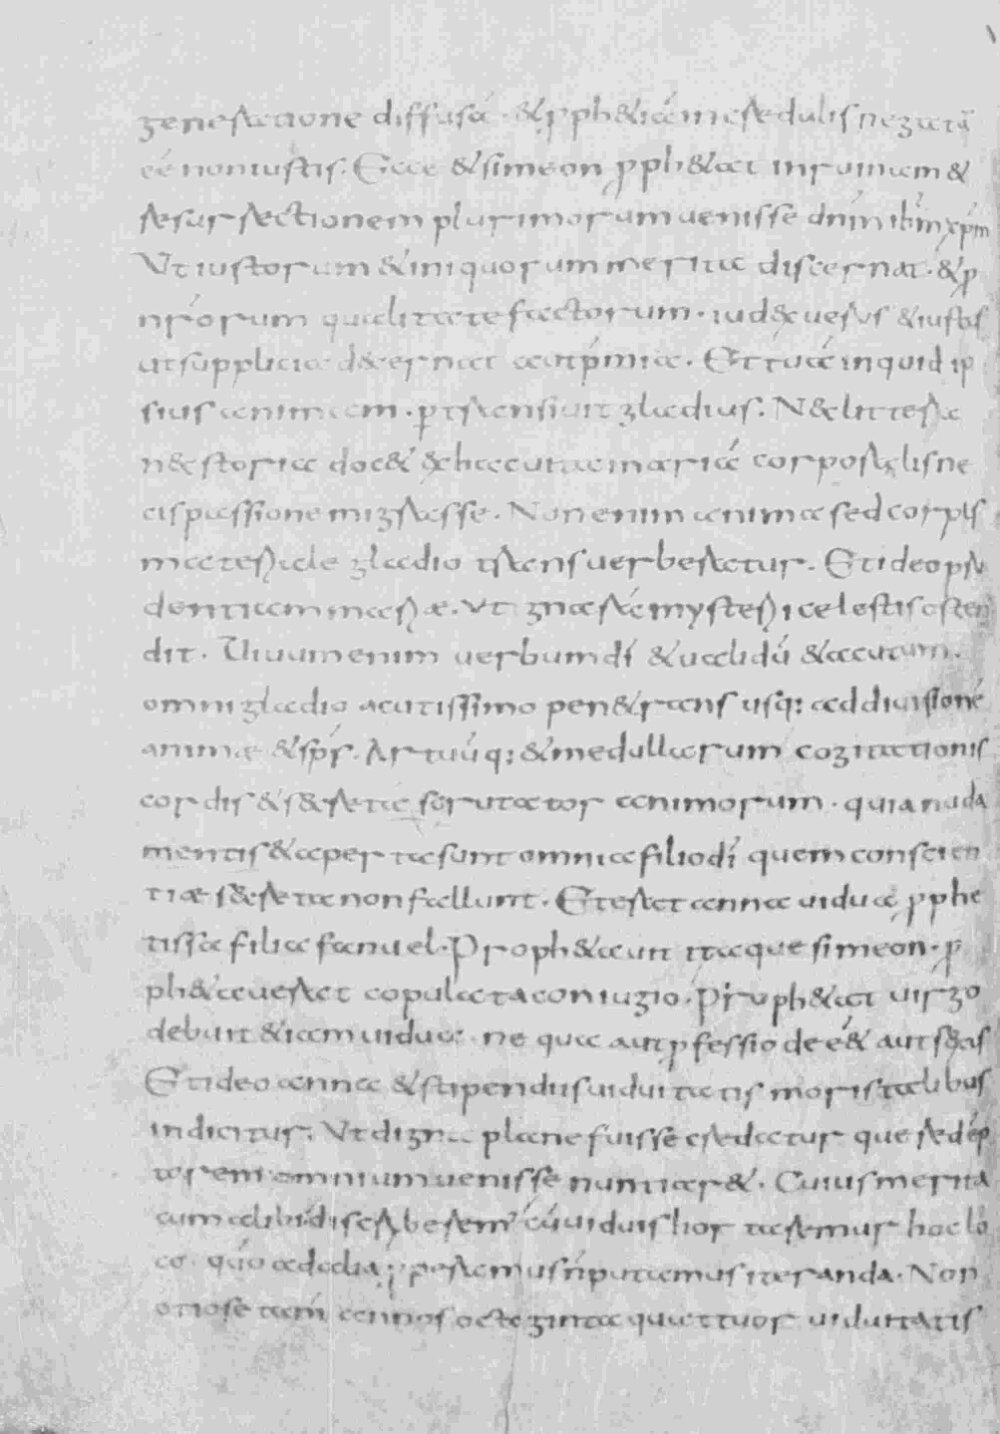 generatione diffusā · &pph&iā incredulis negatā
eē non iustis. Ecce & simeon pph&at in ruinam &
resurrectionem plurimorum uenisse dnm ihm xpm
Ut iustorum & iniquorum merita discernat · & p
nrorum qualitate factorum · iudex uerus & iustus
aut supplicia d&ernat aut pmia. Et tuā inquid ip
sius animam · ptransiuit gladius. Nec littera
nec storia doc& ex hac uita mariā corporalis ne
cis passione migrasse. Non enim anima sed corpus
materiale gladio transuerberatur. Et ideo pru
dentiam mariæ. ut gnarā mysterii celestis osten
dit. Uiuum enim uerbum dī & ualidū & acutum.
omni gladio acutissimo pen&rans usq; ad diuisionē
animæ & sps. Artuūq; & medullarum cogitationis
cordis & secr&a scrutator animorum · quia nuda
mentis & aperta sunt omnia filio dī quem conscien
tiæ secr&a non fallunt. Et erat anna uidua pphe
tissa filia fanuel. Proph&auit itaque simeon · p
ph&auerat copulata coniugio. Proph&at uirgo
debuit & iam uidua: ne qua aut pfessio dee& aut sexus
Et ideo anna & stipendiis uiduitatis moristalibus
indicitur. Ut digna plane fuisse credatur que redēp
torem omnium uenisse nuntiar&. Cuius merita
cum alibi discribserem' cū uiduis hortaremur hoc lo
co. quo ad alia pperamus n putamus iteranda. Non
otiose tam annos octoginta quattuor uiduitatis